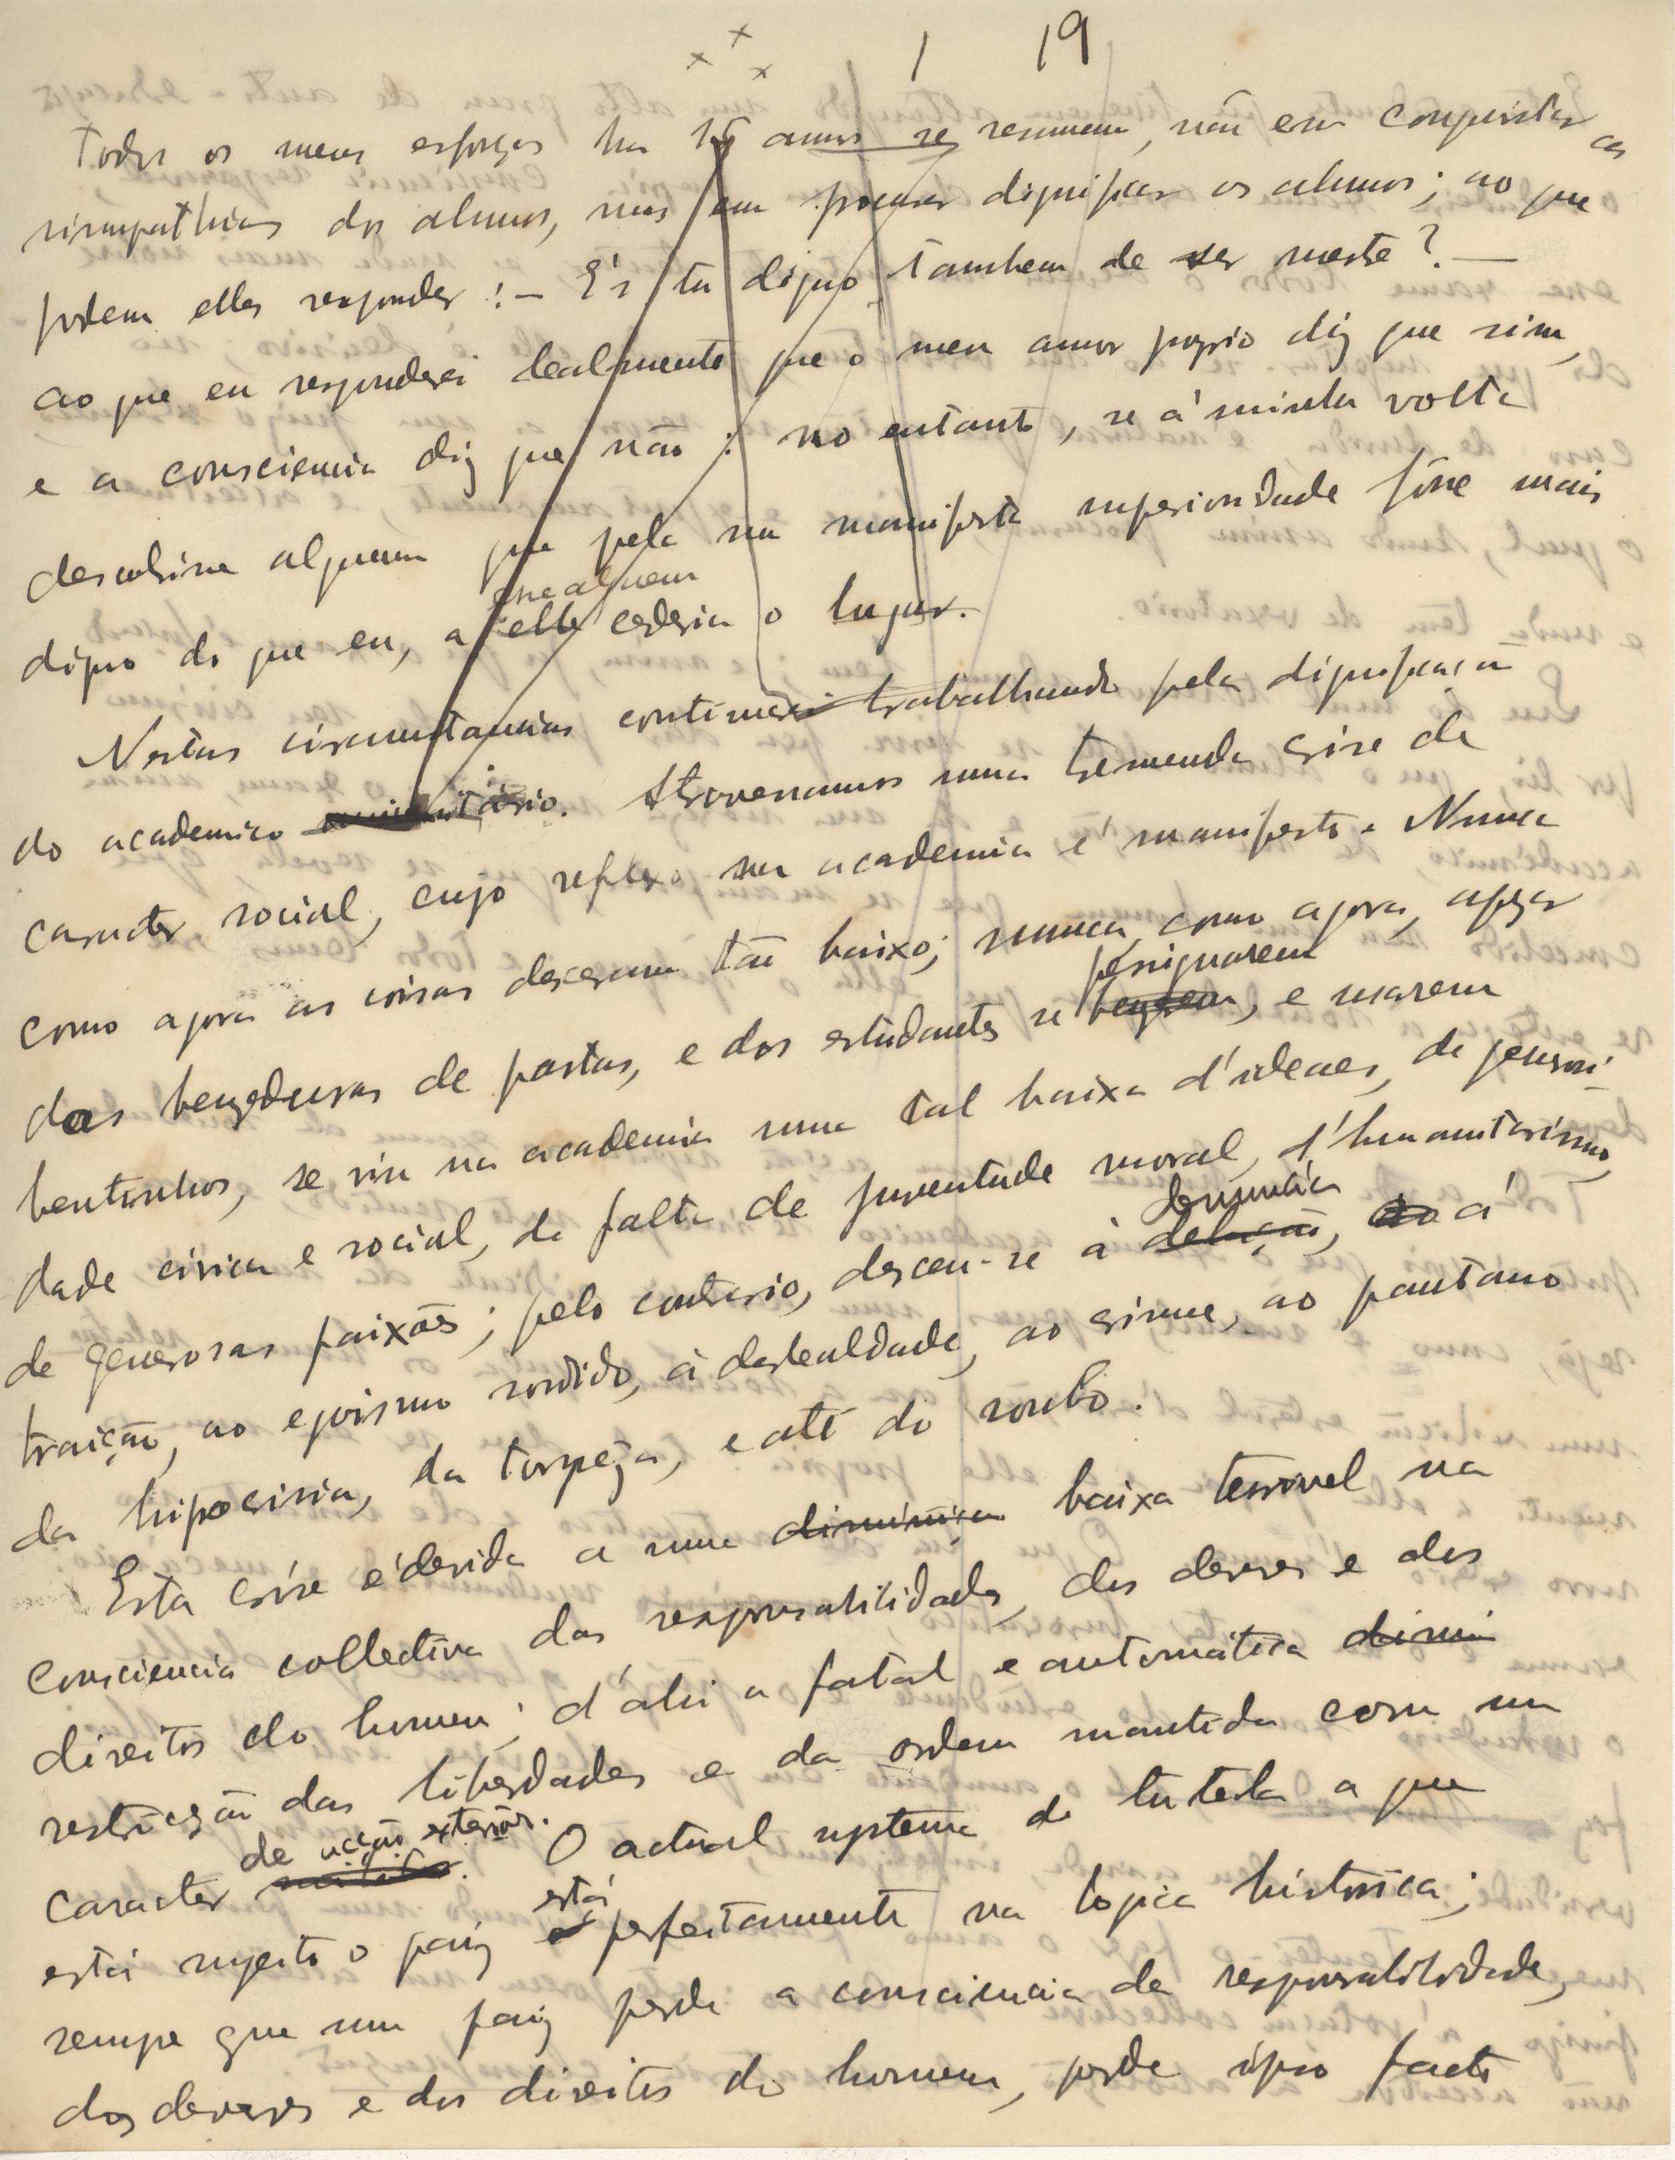 1 19
Todos os meus esforços ha annos se resumem, não em conquistar as
simpathias dos alunos, mas em procurar dignificar os alunos; ao que
podem elles responder: — És tu digno tambem de ser mestre? —
ao que eu responderei lealmente que o meu amor proprio diz que sim,
e a consciencia diz que não: no entanto, se á minha volta
descobrisse alguem que pela sua manifesta superioridade fosse mais
esse alguem
digno do que eu, a elle cederia o lugar.
Nestas circunstancias continuarei trabalhando pela dignificação
do academico. Atravessamos uma tremenda crise de
caracter social, cujo reflexo na academia é manifesto. Nunca
como agora as coisas desceram tão baixo; nunca, como agora, apezar
persignarem
das benzeduras de pastas, e dos estudantes se benzerem, e usarem
bentinhos, se viu na academia uma tal baixa d'ideaes, de generosi-
dade civica e social, de falta de juventude moral, d'humanitarismo,
denuncia
de generosas paixões; pelo contrario, desceu-se á delação, ao á
traição, ao egoismo sordido, á deslealdade, ao crime, ao pantano
da hipocrisia, da torpeza, e até do roubo.
Esta crise é devida a uma diminuição baixa terrivel na
consciencia collectiva das responsabilidades, dos deveres e dos
direitos do homem; d'ahi a fatal e automática dimi
restricção das liberdades e da ordem mantida com um
de acção exterior.
caracter O actual systema de tutela a que
está
está sujeito o paiz é perfeitamente na logica histórica;
sempre que um paiz perde a consciencia de responsabilidade,
dos deveres e dos direitos do homem, perde ipso facto